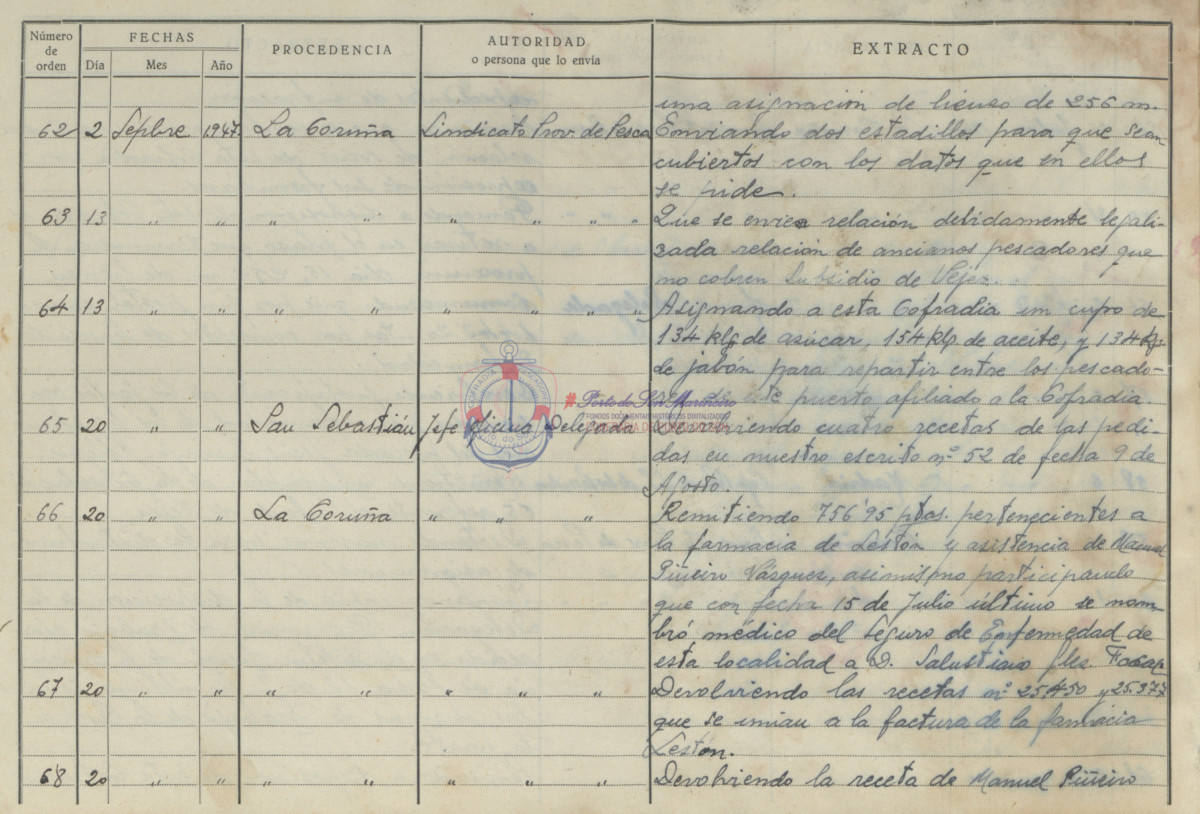 Número de orden FECHAS Día Mes Año PROCEDENCIA AUTORIDAD o persona que lo envía EXTRACTO
una asignación de lienso de 256 m.
62 2 Sepbre 1947. La Coruña Sindicato Prov. de Pesca Enviando dos estadillos para que sean
cubiertos con los datos que en ellos
se pide.
63 13 " " " " " " " " Que se envie relación debidamente legali-
zada relación de ancianos pescadores que
no cobren Subsidio de Vejez.
64 13 " " " " " " " " Asignando a esta Cofradia un cupo de
134 klg de azúcar, 154 klg de aceite, y 134 Kgs
de jabón para repartir entre los pescado-
este puerto afiliado a la Cofradia.
65 20 " " San Sebastián Jefe Oficina Delegada Devolviendo cuatro recetas de las pedi-
das en nuestro escrito nº 52 de fecha 9 de
Agosto.
66 20 " " La Coruña " " " Remitiendo 756'95 ptas. pertenecientes a
la farmacia de Lestón y asistencia de Manuel
Piñeiro Vásques, asimismo participando
que con fecha 15 de Julio último se nom-
bró médico del Seguro de Enfermedad de
esta localidad a D. Salustiano
67 20 " " " " " " " Devolviendo las recetas nº 25.450 y 25.377
que se unian a la factura de la farmacia
Lestón.
68 20 " " " " " " " Devolviendo la receta de Manuel Piñeiro
#Porto do Son Mariñeiro
FONDOS DOCUMENTAIS HISTÓRICOS DIGITALIZADOS